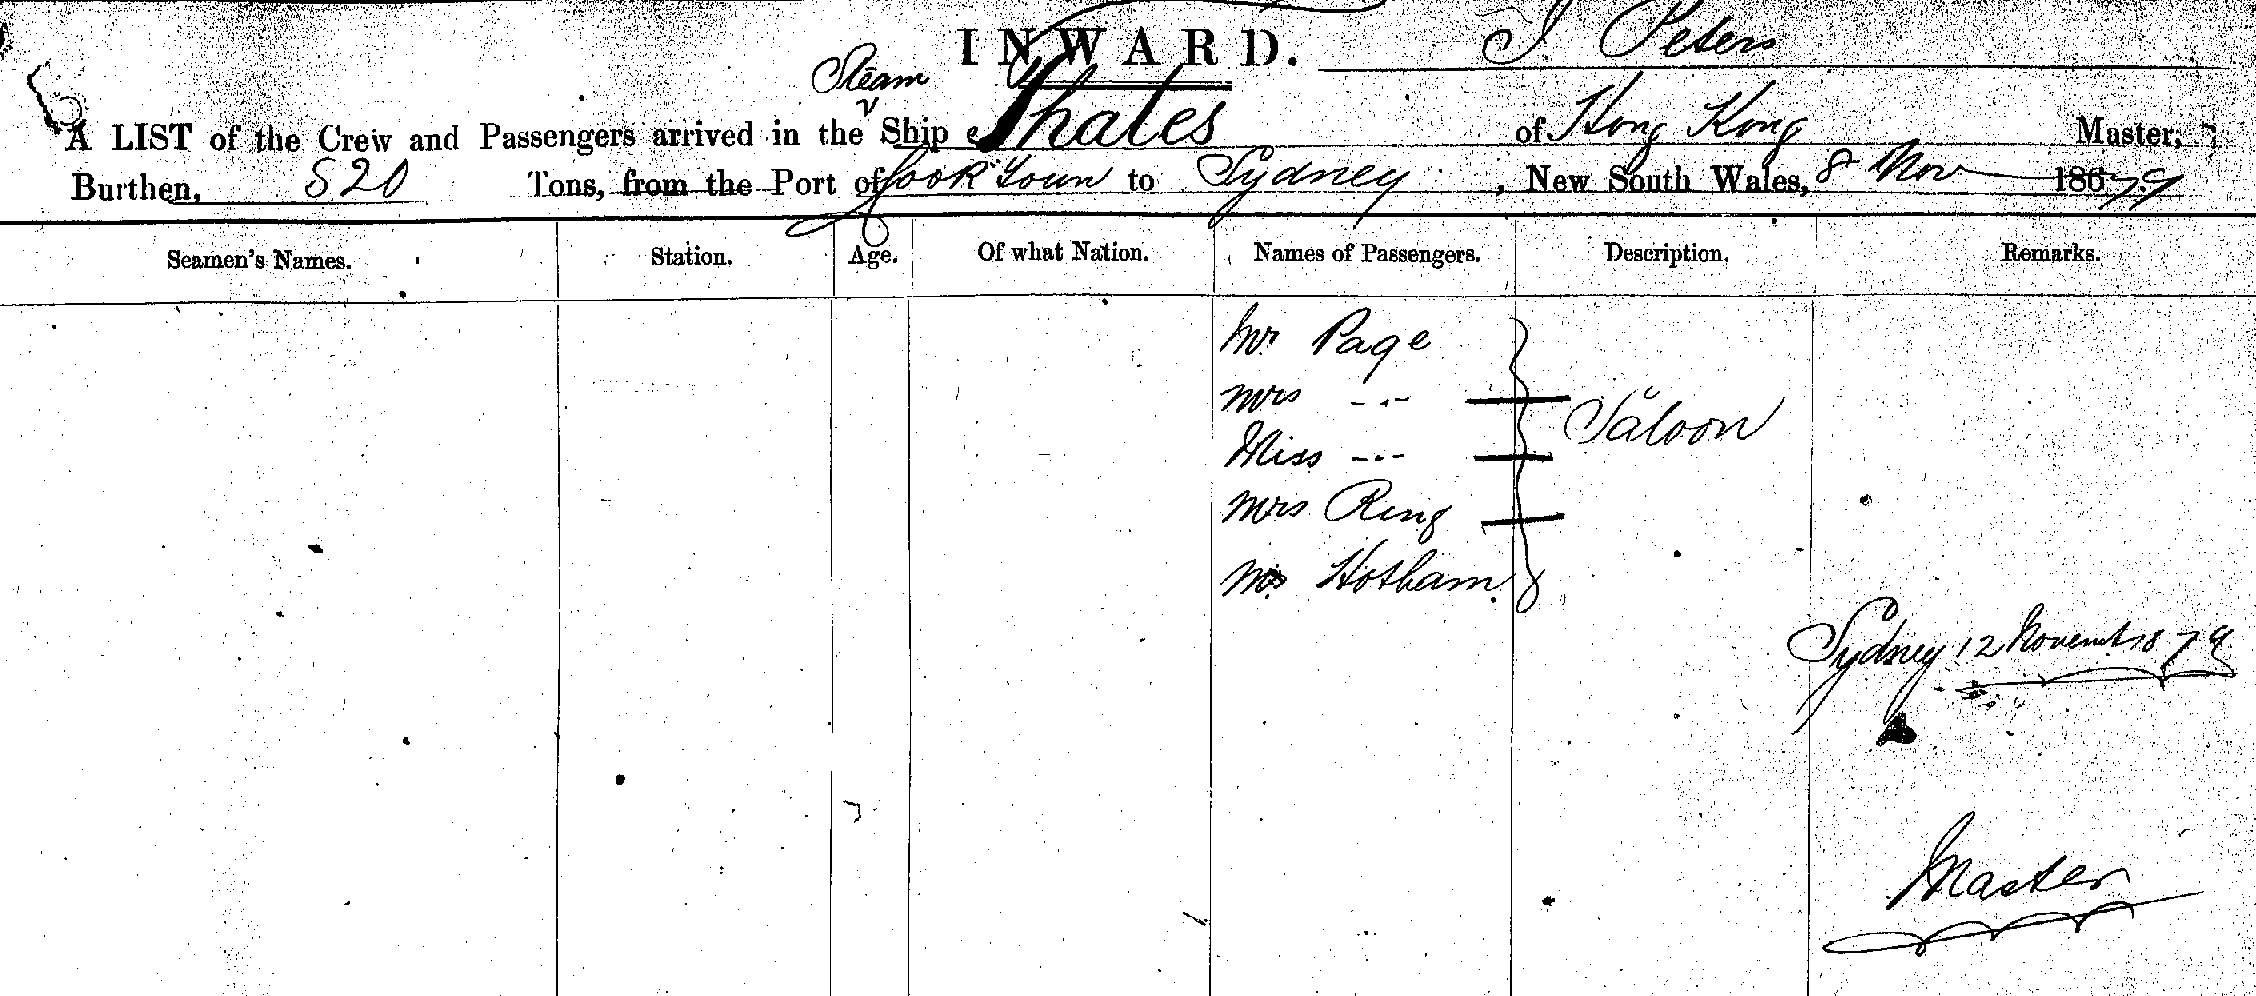 INWARD.
J Peters
Steam
A LIST of the Crew and Passengers arrived in the Ship Thales of Hong Kong Master,
Burthen, 820 Tons, from the Port of Cook Town to Sydney, New South Wales, 8 Nov 1879
Seamen's Names. Station. Age. Of what Nation. Names of Passengers. Description. Remarks.
Mr Page
Mrs -..-
Saloon
Miss -..-
Mrs Ring
Hotham
Sydney 12 Novemb 1879
Master